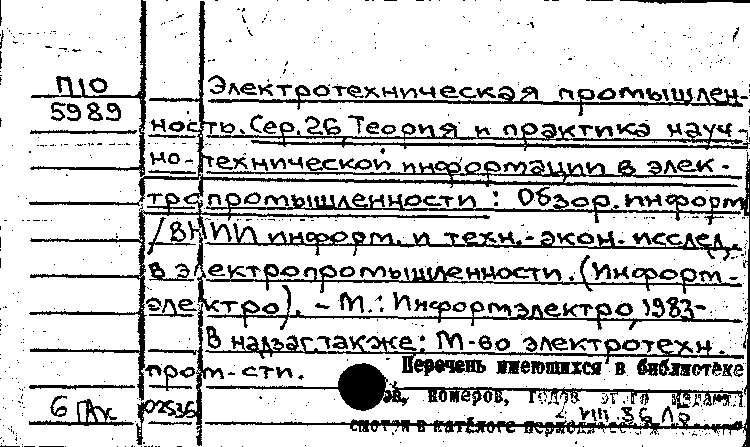 П10
5989
Электротехническая промышлен-
ность. Сер. 26, Теория и практика науч-
но-технической информации в элек-
тропромышленности : Обзор. информ
/ ВНИИ информ. и техн.-экон. исслед.
в электропромышленности. (Информ-
электро). - М.: Информэлектро, 1983-
В надзаг. также: М-во электротехн.
пром-сти.
Перечень имеющихся в библиотеке
номеров, годов этого издания
смотри в каталоге